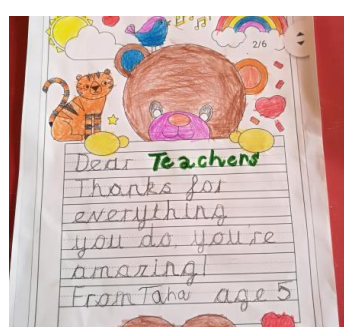 2/6
Dear Teachers
Thanks for
everything
you do, you're
amazing!
From Taha age 5